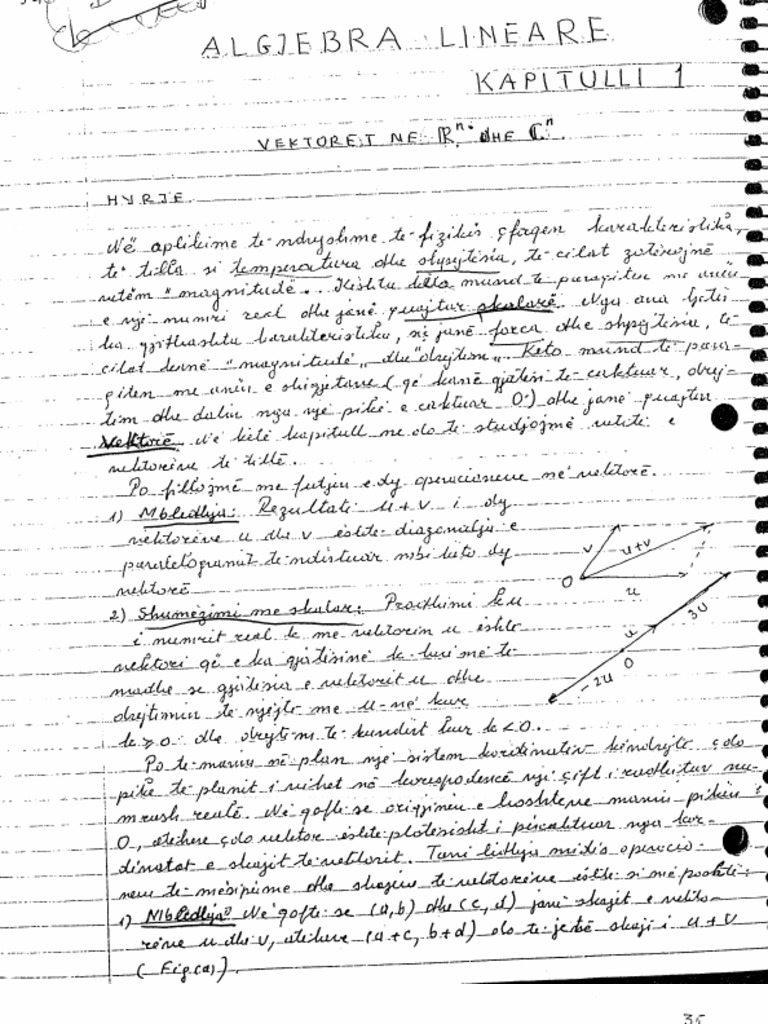 ALGJEBRA LINEARE
KAPITULLI 1
VEKTORET NE ℝⁿ DHE ℂⁿ.
HYRJE
Në aplikime te ndryshme te fizikës çfaqen karakteristika,
te tilla si temperatura dhe shpejtësia, te cilat zotërojnë
vetëm "magnitudë". Kështu këto mund te paraqiten me anën
e një numri real dhe janë quajtur skalarë. Nga ana tjetër
ka gjithashtu karakteristika, si janë forca dhe shpejtësia, të
cilat kanë "magnitudë" dhe "drejtim". Këto mund të para-
qiten me anën e shigjetave (që kanë gjatësi te caktuar, drej-
tim dhe dalin nga një pikë e caktuar O) dhe janë quajtur
Vektorë. Në këtë kapitull ne do te studjojmë vetitë e
vektorëve të tillë.
Po fillojmë me futjen e dy operacioneve në vektorë.
1) Mbledhja: Rezultati u+v i dy
vektorëve u dhe v është diagonalja e
paralelogramit te ndërtuar mbi këto dy
vektorë
v u+v
O u
2) Shumëzimi me skalar: Prodhimi ku
i numrit real k me vektorin u është
vektori që e ka gjatësinë k-herë më te
madhe se gjatësia e vektorit u dhe
drejtimin te njëjtë me u-në kur
k≥0 dhe drejtim te kundërt kur k<0.
3u
u
O
-2u
Po te marim në plan një sistem kordinativ këndrejtë çdo
pikë te planit i vihet në korespodencë një çift i renditur nu-
mrash realë. Në qoftë se origjinën e boshteve marim pikën
O, atëhere çdo vektor është plotësisht i përcaktuar nga kor-
dinatat e skajit te vektorit. Tani lidhja midis operacio-
neve te mësipërme dhe skajeve te vektorëve është si më poshtë:
1) Mbledhja: Në qoftë se (a,b) dhe (c,d) janë skajet e vekto-
rëve u dhe v, atëhere (a+c, b+d) do te jetë skaji i u+v
(Fig(a)).
35